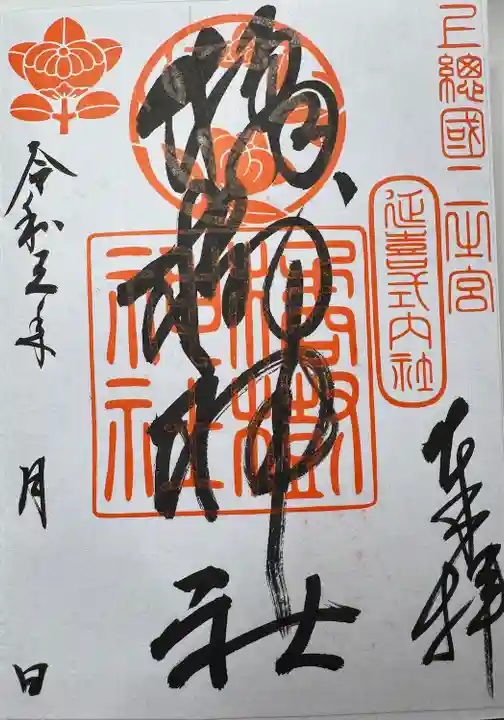 上總國二之宮
延喜式内社
奉拝
橘樹神社
橘樹神社
令和三年
月
日